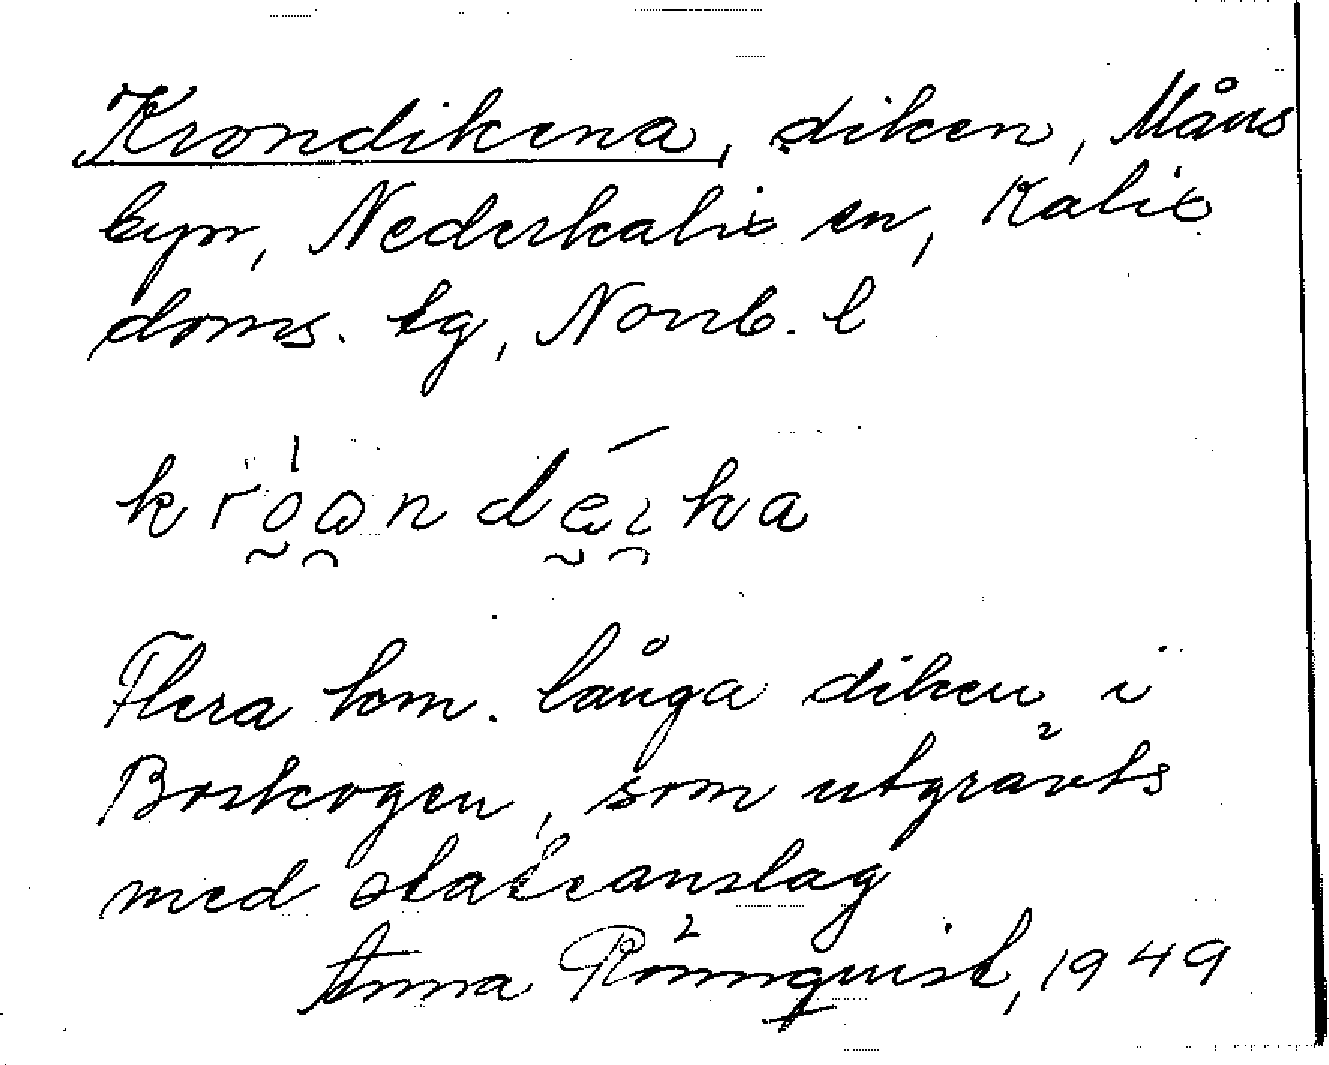 Krondikena, diken, Måns
byn, Nederkalix sn, Kalix
doms. tg, Norrb. l
Flera km. långa diken i
Boskogen, som utgrävts
med statsanslag
Anna Rönnquist, 1949